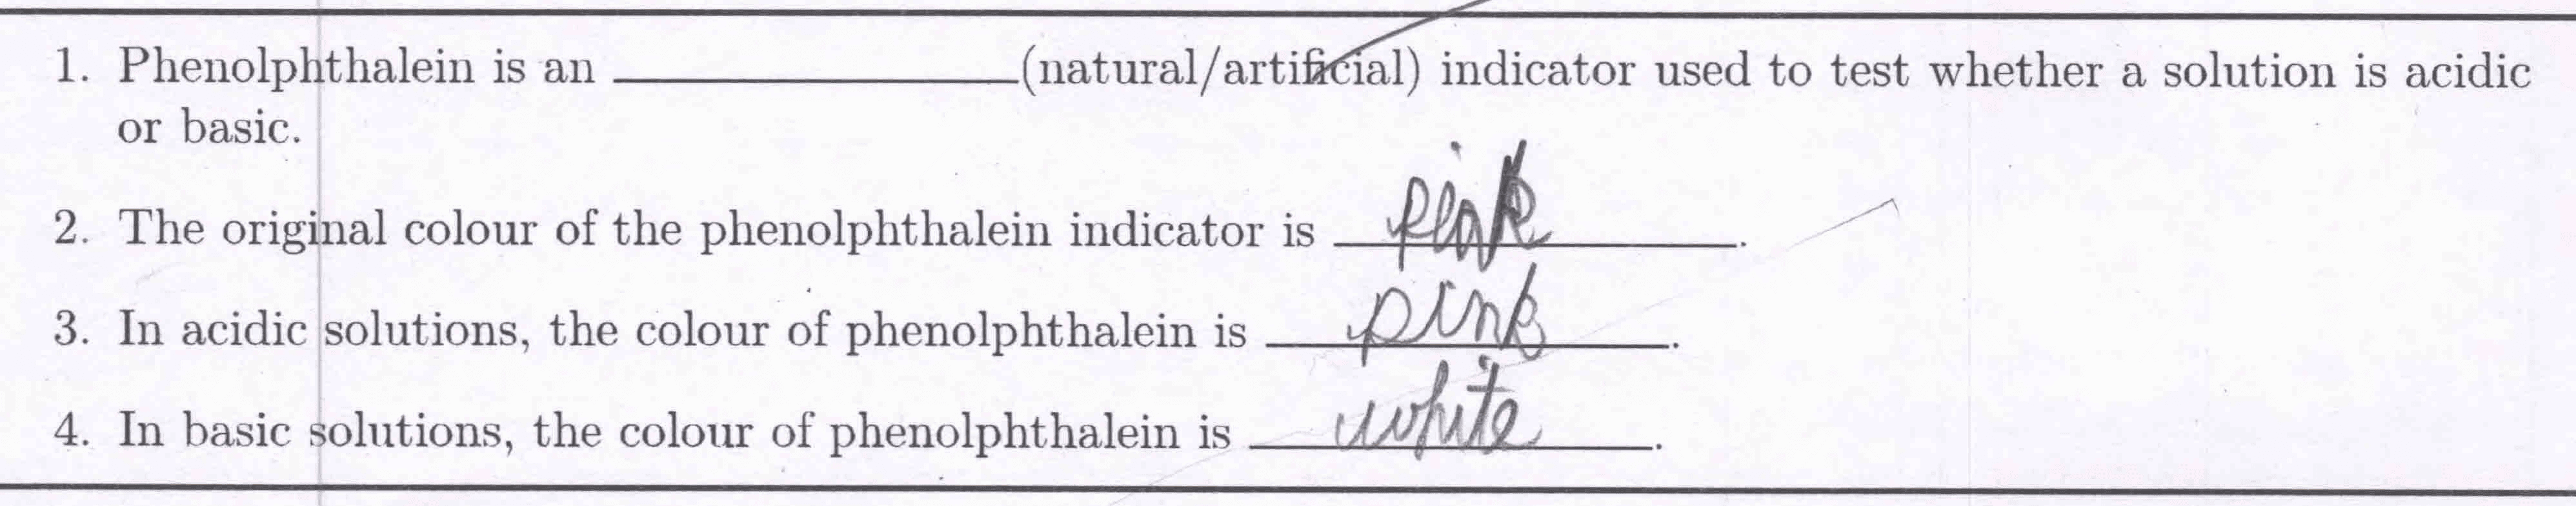 1. Phenolphthalein is an ____________(natural/artificial) indicator used to test whether a solution is acidic
or basic.
2. The original colour of the phenolphthalein indicator is pink.
3. In acidic solutions, the colour of phenolphthalein is pink.
4. In basic solutions, the colour of phenolphthalein is white.